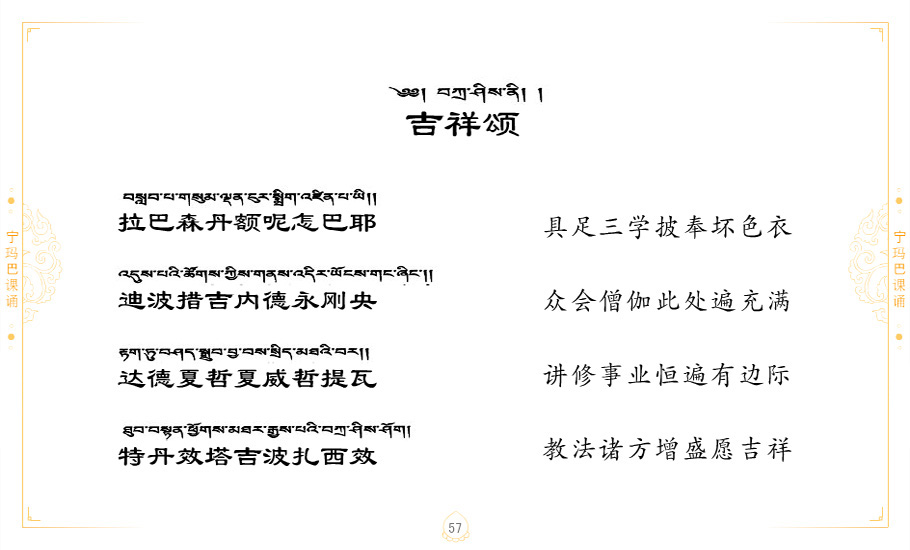 ༄༅། བཀྲ་ཤིས་ནི། །
吉祥颂
བསླབ་པ་གསུམ་ལྡན་ངུར་སྨྲིག་འཛིན་པ་ཡི།།
拉巴森丹额呢怎巴耶
具足三学披奉坏色衣
འདུས་པའི་ཚོགས་ཀྱིས་གནས་འདིར་ཡོངས་གང་ཞིང་།།
迪波措吉内德永刚央
众会僧伽此处遍充满
རྟག་ཏུ་བཤད་སྒྲུབ་བྱ་བས་སྲིད་མཐའི་བར།།
达德夏哲夏威哲提瓦
讲修事业恒遍有边际
ཐུབ་བསྟན་ཕྱོགས་མཐར་རྒྱས་པའི་བཀྲ་ཤིས་ཤོག།
特丹效塔吉波扎西效
教法诸方增盛愿吉祥
宁玛巴课诵
宁玛巴课诵
57